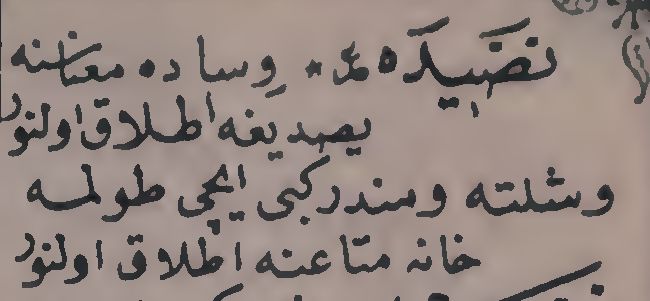 نضيده ع * وساده معناسنه
يصديغه اطلاق اولنور
وشلته ومندر كبی ایچی طولمه
خانه متاعنه اطلاق اولنور